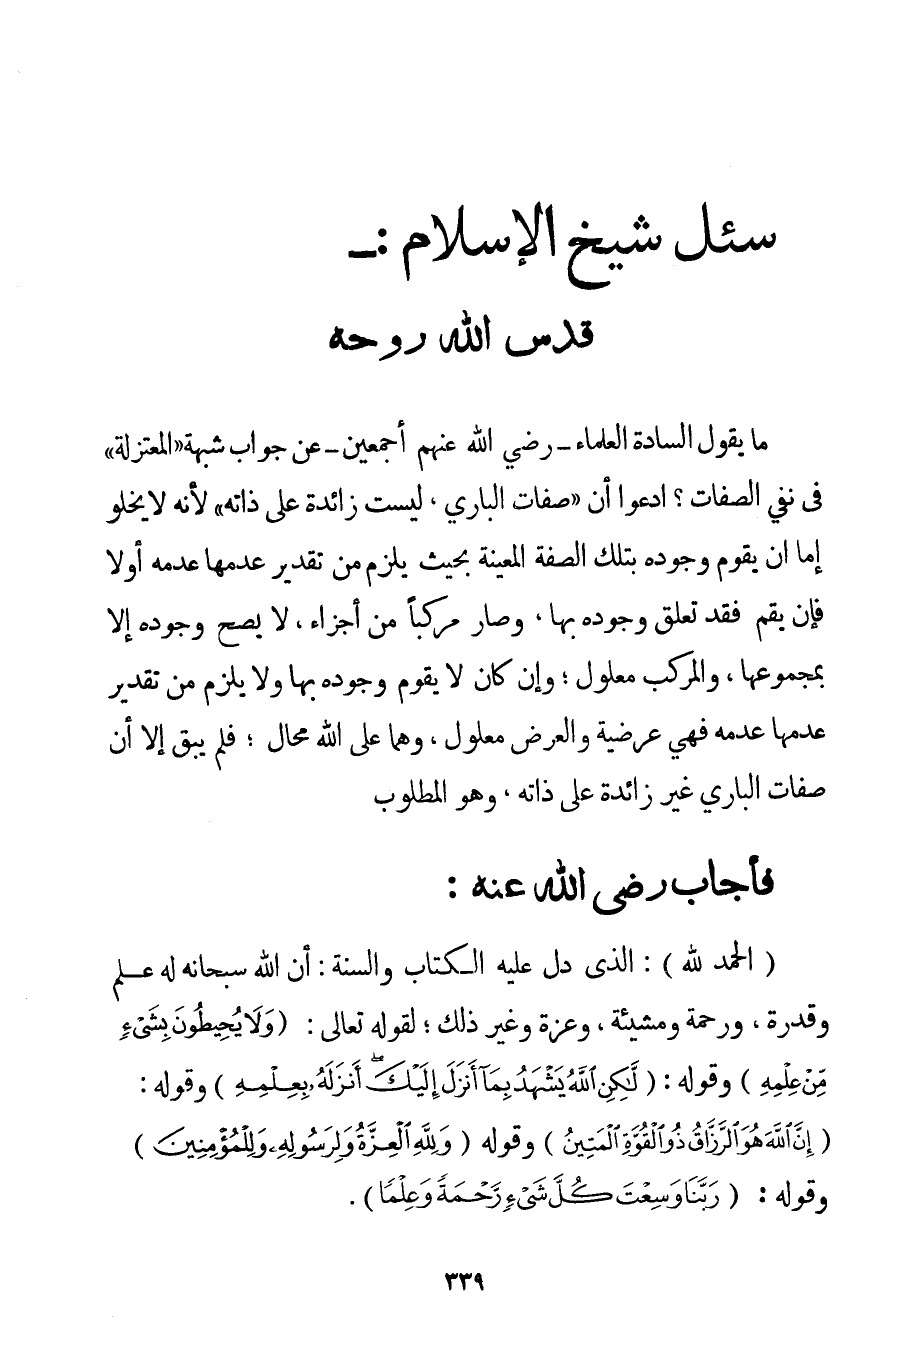 سئل شيخ الإسلام :ـ
قدس الله روحه
ما يقول السادة العلماء ـ رضي الله عنهم أجمعين ـ عن جواب شبهة «المعتزلة»
فى نفي الصفات ؟ ادعوا أن «صفات الباري ، ليست زائدة على ذاته» لأنه لا يخلو
إما ان يقوم وجوده بتلك الصفة المعينة بحيث يلزم من تقدير عدمها عدمه أولا
فإن يقم فقد تعلق وجوده بها ، وصار مركباً من أجزاء ، لا يصح وجوده إلا
بمجموعها ، والمركب معلول ؛ وإن كان لا يقوم وجوده بها ولا يلزم من تقدير
عدمها عدمه فهي عرضية والعرض معلول ، وهما على الله محال ؛ فلم يبق إلا أن
صفات الباري غير زائدة على ذاته ، وهو المطلوب
فأجاب رضى الله عنه :
( الحمد لله ) : الذى دل عليه الكتاب والسنة : أن الله سبحانه له علم
وقدرة ، ورحمة ومشيئة ، وعزة وغير ذلك ؛ لقوله تعالى : ( وَلَا يُحِيطُونَ بِشَىْءٍ
مِّنْ عِلْمِهِ ) وقوله : ( لَّٰكِنِ ٱللَّهُ يَشْهَدُ بِمَآ أَنزَلَ إِلَيْكَ ۖ أَنزَلَهُۥ بِعِلْمِهِ ) وقوله :
( إِنَّ ٱللَّهَ هُوَ ٱلرَّزَّاقُ ذُو ٱلْقُوَّةِ ٱلْمَتِينُ ) وقوله ( وَلِلَّهِ ٱلْعِزَّةُ وَلِرَسُولِهِۦ وَلِلْمُؤْمِنِينَ )
وقوله : ( رَبَّنَا وَسِعْتَ كُلَّ شَىْءٍ رَّحْمَةً وَعِلْمًا ) .
٣٣٩